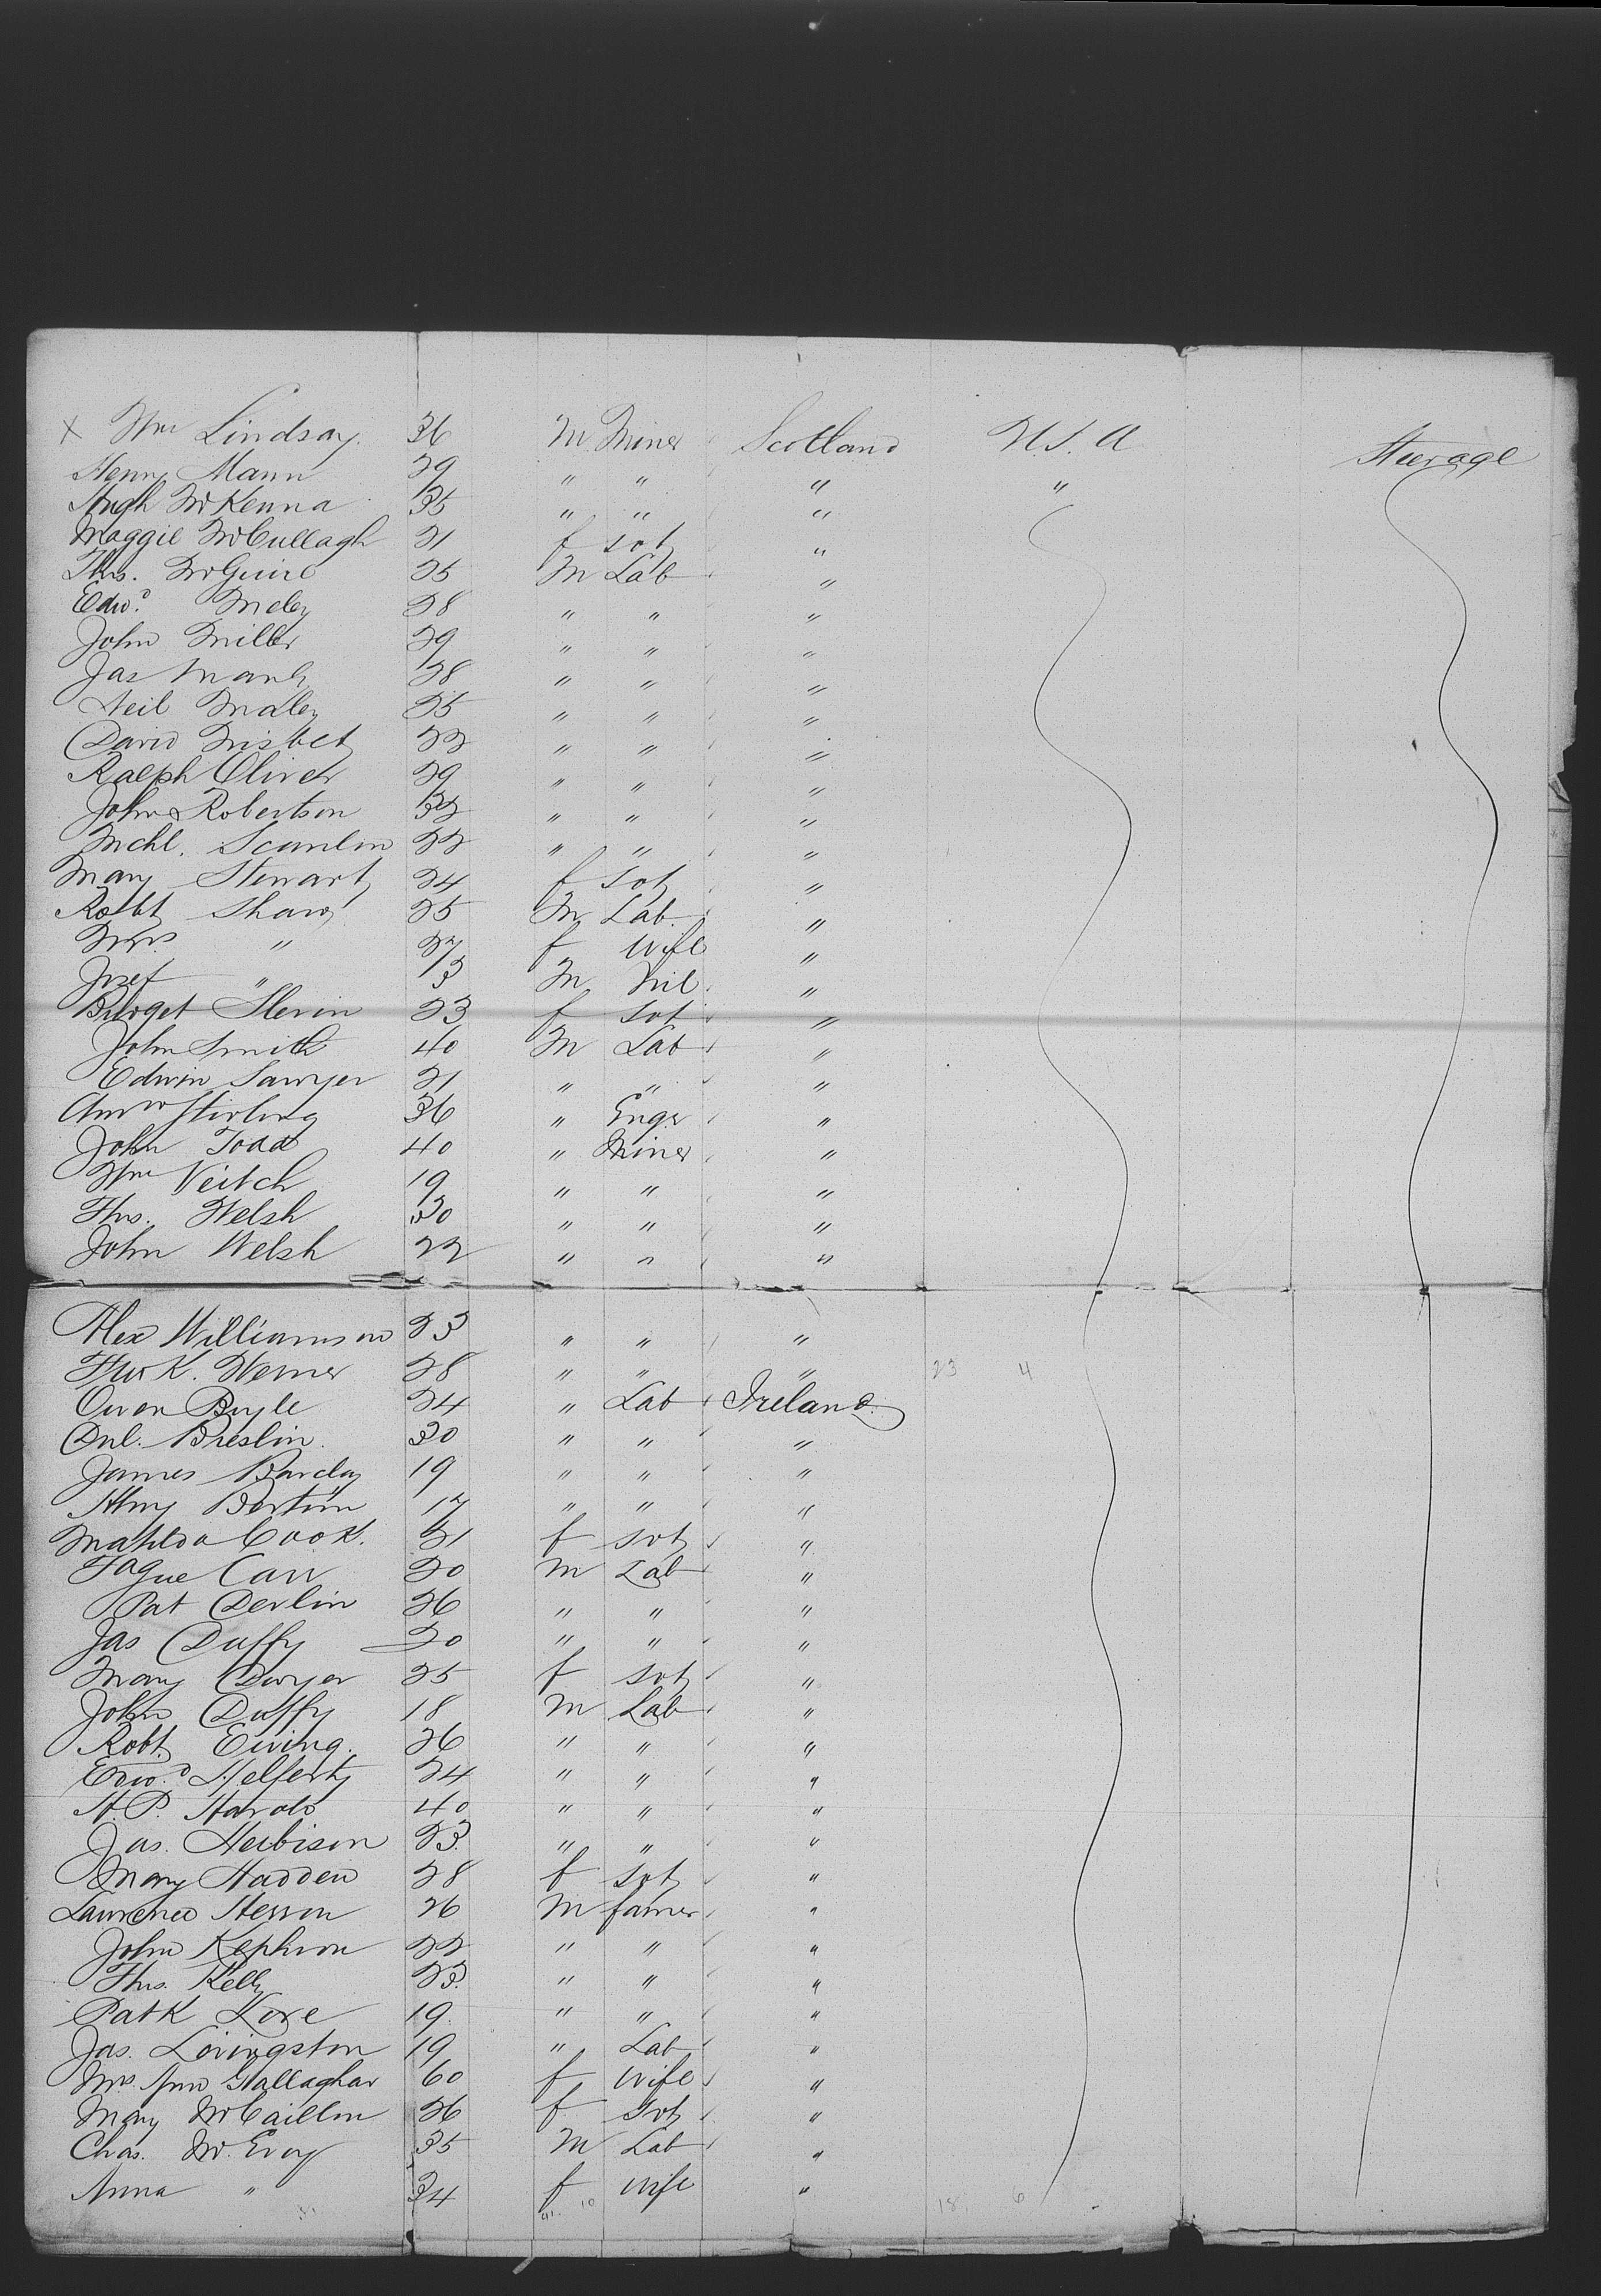 X Wm Lindsay. 36 M Miner Scotland U.S.A Steerage
Henry Mann 29 " " " "
Hugh McKenna 35 " " "
Maggie McCullagh 21 f svt "
Ths. McGuire 25 M Lab "
Edwd. 28 " " "
John Miller 29 " " "
Jas 28 " " "
Neil 25 " " "
David Nisbet 22 " " "
Ralph Oliver 29 " " "
John Robertson 32 " " "
Mchl. Scanlon 22 " " "
Mary Stewart 24 f svt "
Robt Shaw 25 M Lab "
Mrs " 27 f wife "
Josef " 3 M Nil "
Bridget Slevin 23 f svt "
John Smith 40 M Lab "
Edwin Sawyer 21 " " "
Andw Stirling 36 " Engr "
John Todd 40 " Miner "
Wm Veitch 19 " " "
Ths. Welsh 30 " " "
John Welsh 22 " " "
Alex Williamson 23 " " "
28 " " " 23 4
Owen Boyle 24 " Lab Ireland
Dnl. Breslin 30 " " "
James Barclay 19 " " "
17 " " "
Matilda Cook. 21 f svt "
Carr 20 M Lab "
Pat Devlin 26 " " "
Jas Duffy 20 " " "
Mary Dwyer 25 f svt "
John Duffy 18 M Lab "
Robt. Ewing. 26 " " "
Edwd. Helferty 24 " " "
H.P. Harold 40 " " "
Jas. Herbison 23 " " "
Mary Hadden 28 f svt "
Lawrence Herron 26 M famer "
John 22 " " "
Ths. Kelly 23 " " "
Patk 19. " " "
Jas. Livingston 19 " Lab "
Mrs. Ann Gallaghar 60 f wife "
Mary 26 f svt "
Chas. McEvoy 35 M Lab "
Anna " 34 f wife "
18 6